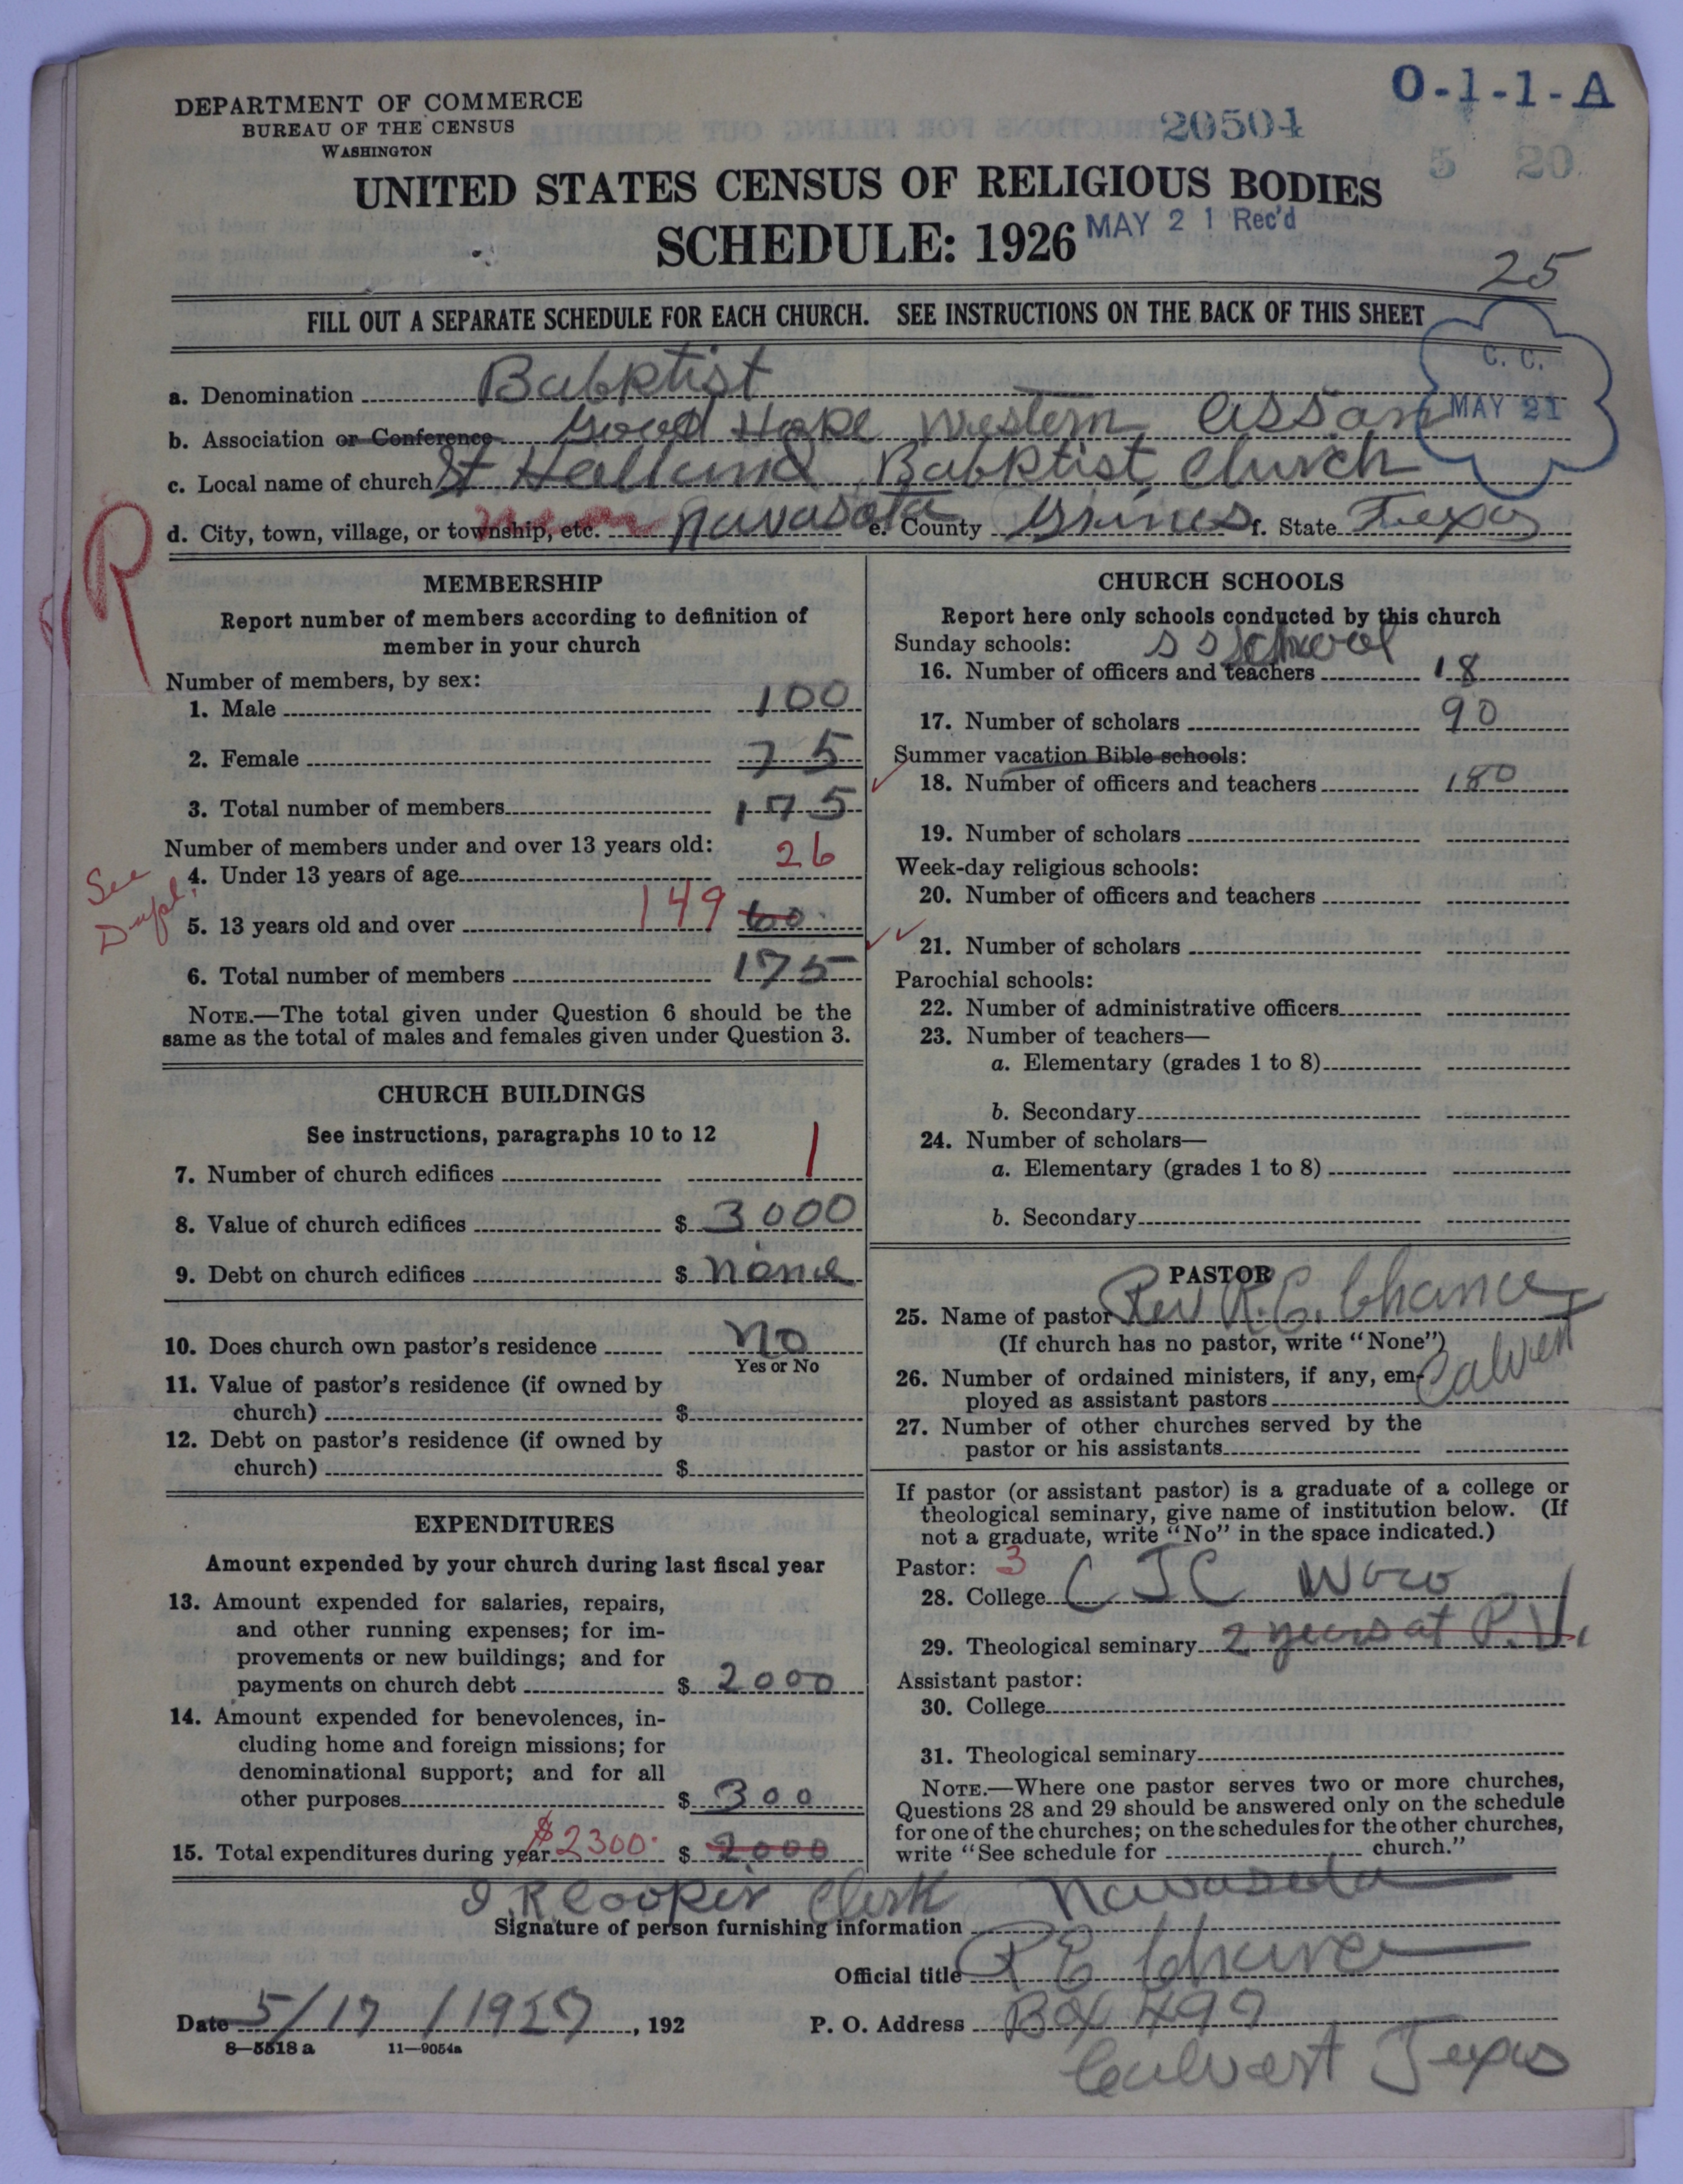 DEPARTMENT OF COMMERCE
BUREAU OF THE CENSUS
WASHINGTON
O-1-1-A
20504
5 20
UNITED STATES CENSUS OF RELIGIOUS BODIES
SCHEDULE: 1926
MAY 21 Rec'd
25
FILL OUT A SEPARATE SCHEDULE FOR EACH CHURCH. SEE INSTRUCTIONS ON THE BACK OF THIS SHEET
C. C.
MAY 21
a. Denomination Babktist
b. Association or Conference Good Hope Western Assan
c. Local name of church St. Babktist Church
d. City, town, village, or township, etc. near Navasota e. County Grimes f. State Texas
R
MEMBERSHIP
Report number of members according to definition of
member in your church
Number of members, by sex:
1. Male 100
2. Female 75
3. Total number of members 175
Number of members under and over 13 years old:
4. Under 13 years of age 26
See
Dupl.
5. 13 years old and over 149 60
6. Total number of members 175
NOTE.—The total given under Question 6 should be the
same as the total of males and females given under Question 3.
CHURCH BUILDINGS
See instructions, paragraphs 10 to 12
7. Number of church edifices 1
8. Value of church edifices $ 3000
9. Debt on church edifices $ none
10. Does church own pastor's residence No
Yes or No
11. Value of pastor's residence (if owned by
church) $
12. Debt on pastor's residence (if owned by
church) $
EXPENDITURES
Amount expended by your church during last fiscal year
13. Amount expended for salaries, repairs,
and other running expenses; for im-
provements or new buildings; and for
payments on church debt $ 2000
14. Amount expended for benevolences, in-
cluding home and foreign missions; for
denominational support; and for all
other purposes $ 300
15. Total expenditures during year $2300 $ 2000
CHURCH SCHOOLS
Report here only schools conducted by this church
Sunday schools: S S School
16. Number of officers and teachers 18
17. Number of scholars 90
Summer vacation Bible schools:
18. Number of officers and teachers 180
19. Number of scholars
Week-day religious schools:
20. Number of officers and teachers
21. Number of scholars
Parochial schools:
22. Number of administrative officers
23. Number of teachers—
a. Elementary (grades 1 to 8)
b. Secondary
24. Number of scholars—
a. Elementary (grades 1 to 8)
b. Secondary
PASTOR
25. Name of pastor Rev R. E. Chance
(If church has no pastor, write "None")
Calvert
26. Number of ordained ministers, if any, em-
ployed as assistant pastors
27. Number of other churches served by the
pastor or his assistants
If pastor (or assistant pastor) is a graduate of a college or
theological seminary, give name of institution below. (If
not a graduate, write "No" in the space indicated.)
Pastor: 3
28. College C J C Waco
29. Theological seminary 2 years at P. V.
Assistant pastor:
30. College
31. Theological seminary
NOTE.—Where one pastor serves two or more churches,
Questions 28 and 29 should be answered only on the schedule
for one of the churches; on the schedules for the other churches,
write "See schedule for church."
J. R Cooper Clerk Navasota
Signature of person furnishing information
Official title R E Chance
Date 5/17/1927, 192
P. O. Address Box 497
Calvert Texas
8—5518 a 11—9054a